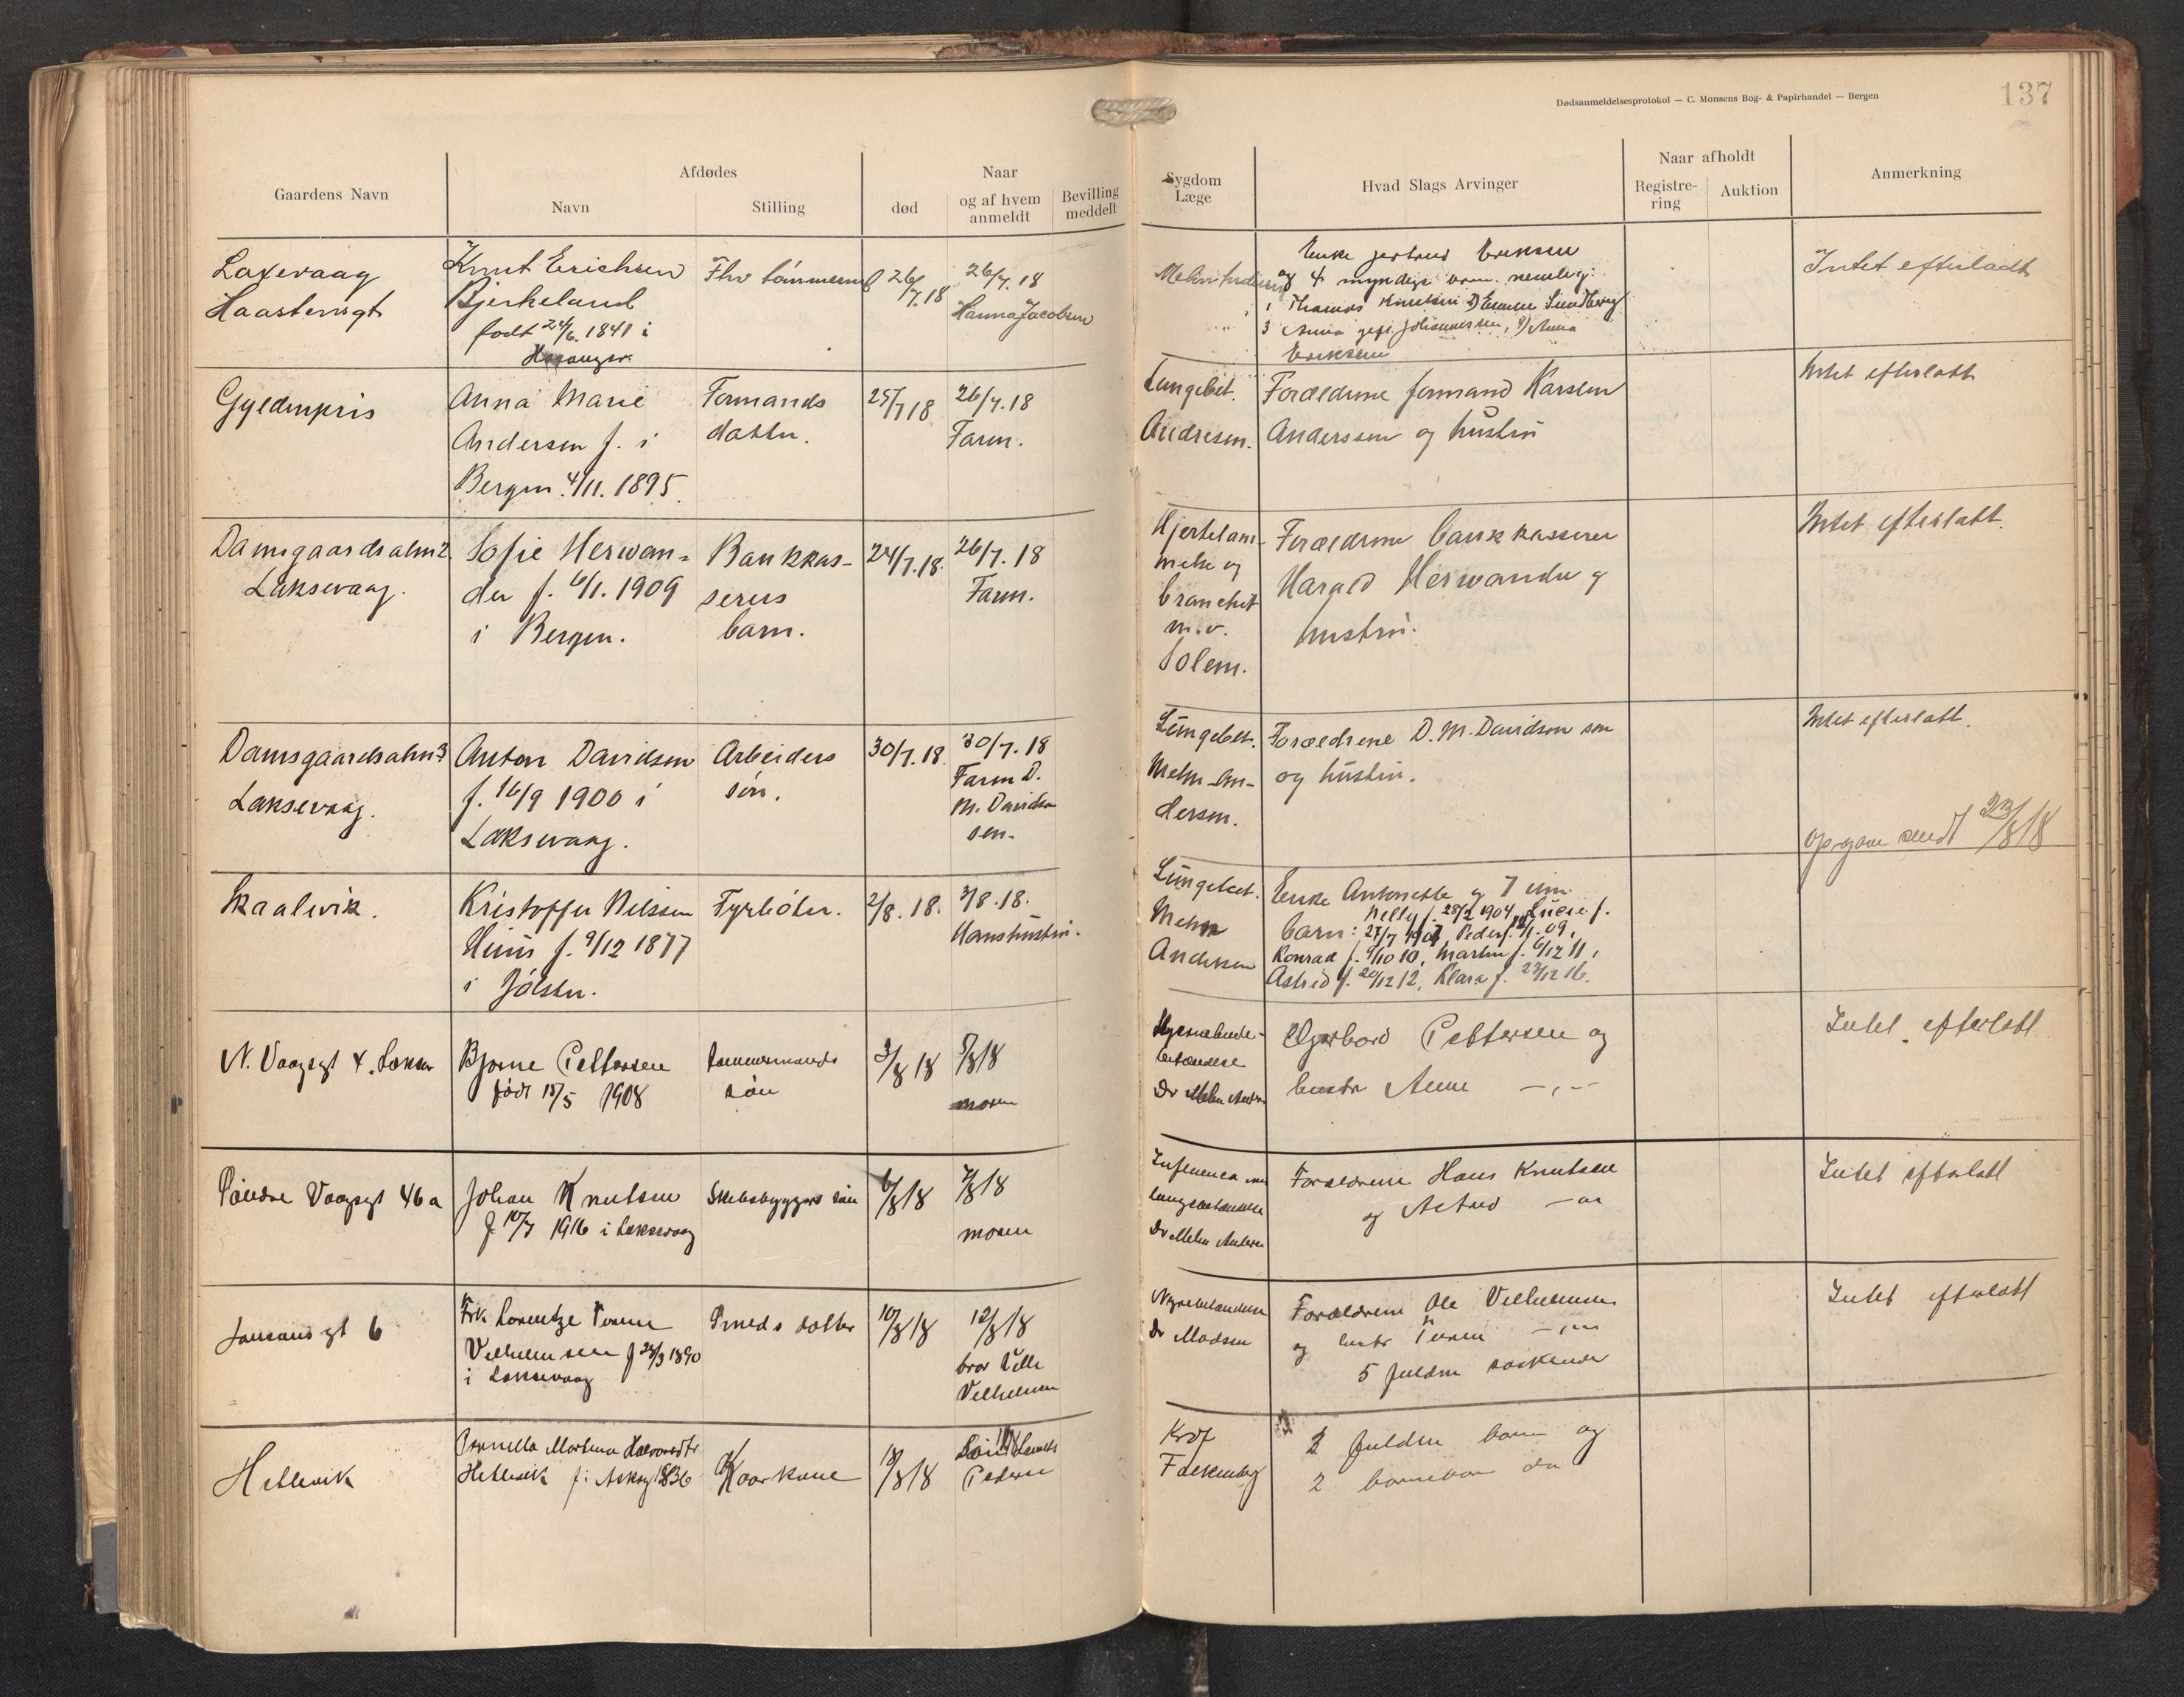 Dødsanmeldelsesprotokol — C. Monsens Bog- & Papirhandel — Bergen
137
Gaardens Navn
Afdødes
Navn
Stilling
Naar
død
og af hvem anmeldt
Bevilling meddelt
Sygdom
Læge
Hvad Slags Arvinger
Naar afholdt
Registre-
ring
Auktion
Anmerkning
Laxevaag
Knut Erichsen
Bjerkeland
født 24/6. 1841 i
Fhv tømmerm
26/7.18
26/7.18
Hanna Jacobsen
Enke Jertrud Eriksen
og 4 myndige barn. nemlig:
1 Thomas Knutsen 2) Emma Sundberg
3 Anna gift Johannessen, 4) Anna
Eriksen
Intet efterladt
Gyldenpris
Anna Marie
Andersen f. i
Bergen 4/11. 1895.
Formands
datter.
25/7 18
26/7.18
Farm.
Lungebet.
Andresen.
Forældrene formand Karsten
Anderssen og hustru
Intet efterlatt
Damsgaardsalm 2
Laksevaag.
Sofie Herwan-
der f. 6/1. 1909
i Bergen.
Bankkas-
serers
barn.
24/7.18.
26/7. 18
Faren.
Hjertelam-
melse og
bronchit
m.v.
Solem.
Forældrene bankkasserer
Harald Herwander og
hustru.
Intet efterlatt.
Damsgaardsalm 3
Laksevaag.
Anton Davidsen
f. 16/9 1900 i
Laksevaag.
Arbeiders
søn.
30/7.18.
30/7.18
Faren D.
M. Davidsen
sen.
Lungebet.
Mehn-An-
dersen.
Forældrene D. M. Davidsen sen
og hustru.
Intet efterlatt.
opgave sendt 23/8 18
Skaalevik.
Kristoffer Nilssen
f. 9/12 1877
i Jølster.
Fyrbøter.
2/8. 18.
3/8. 18.
Hans hustru.
Lungebet.
Mehn
Andersen
Enke Antonette og 7 um.
Nelly f. 28/2 1904, Lucie f.
barn: 27/7 1907, Peder f. 12/1. 09,
Konrad f. 9/10 10, Martin f. 6/12 11,
Astrid f. 20/12 12, Klara f. 27/12 16.
N. Vaagsgt 4. Laksev
Bjarne Pettersen
født 18/5 1908
tømmermands
søn
3/8 18
5/8 18
moren
betændelse
Dr Mehn Anders
Pettersen og
hustr Anne —„—
Intet efterlatt
Søndre Vaagsgt 46a
Johan Knutsen
f 10/7 1916 i Laksevaag
Skibsbyggers søn
6/8 18
7/8 18
moren
Influenca m
lungebetændelse
Dr Mehn Andersen
Forældrene Hans Knutsen
og Astrid —„—
Intet efterlatt
Jansens gt 6
Frk. Lorentze
Vilhelmsen f 24/3 1890
i Laksevaag
Smeds datter
10/8 18
12/8 18
bror
Vilhelmsen
Nyrebetændelse
Dr Madsen
Forældrene Ole Vilhelmsen
og hustr —„—
5 fuldm søskende
Intet efterlatt
Hetlevik
Pernille Martina
Hetlevik f i Askøy 1836
Kaarkone
18/8 18
Pedersen
Kræf
Falkenberg
2 fuldm barn og
2 barnebarn